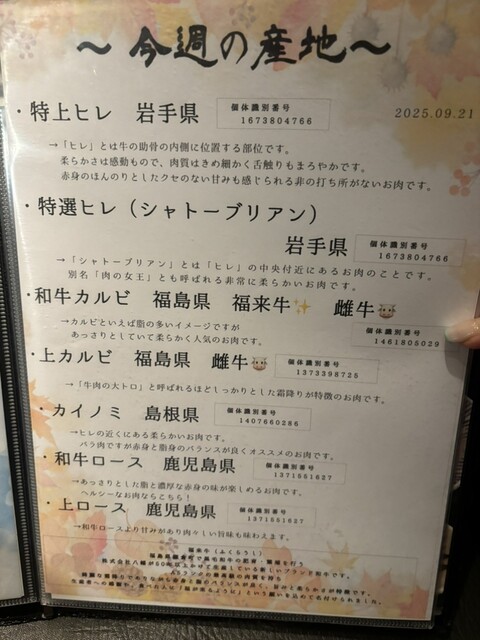 ～今週の産地～
2025.09.21
・特上ヒレ 岩手県 個体識別番号 1673804766
→「ヒレ」とは牛の肋骨の内側に位置する部位です。
柔らかさは感動もので、肉質はきめ細かく舌触りもまろやかです。
赤身のほんのりとしたクセのない甘みも感じられる非の打ち所がないお肉です。
・特選ヒレ（シャトーブリアン）
岩手県 個体識別番号 1673804766
→「シャトーブリアン」とは「ヒレ」の中央付近にあるお肉のことです。
別名「肉の女王」とも呼ばれる非常に柔らかいお肉です。
・和牛カルビ 福島県 福来牛✨ 雌牛🐮
個体識別番号 1461805029
→カルビといえば脂の多いイメージですが
あっさりとしていて柔らかく人気のお肉です。
・上カルビ 福島県 雌牛🐮 個体識別番号 1373398725
→「牛肉の大トロ」と呼ばれるほどしっかりとした霜降りが特徴のお肉です。
・カイノミ 島根県 個体識別番号 1407660286
→ヒレの近くにある柔らかいお肉です。
バラ肉ですが赤身と脂身のバランスが良くオススメのお肉です。
・和牛ロース 鹿児島県 個体識別番号 1371551627
→あっさりとした脂と濃厚な赤身の味が楽しめるお肉です。
ヘルシーなお肉ならこちら！
・上ロース 鹿児島県 個体識別番号 1371551627
→和牛ロースより甘みがあり肉々しい旨味も味わえます。
福来牛（ふくらうし）